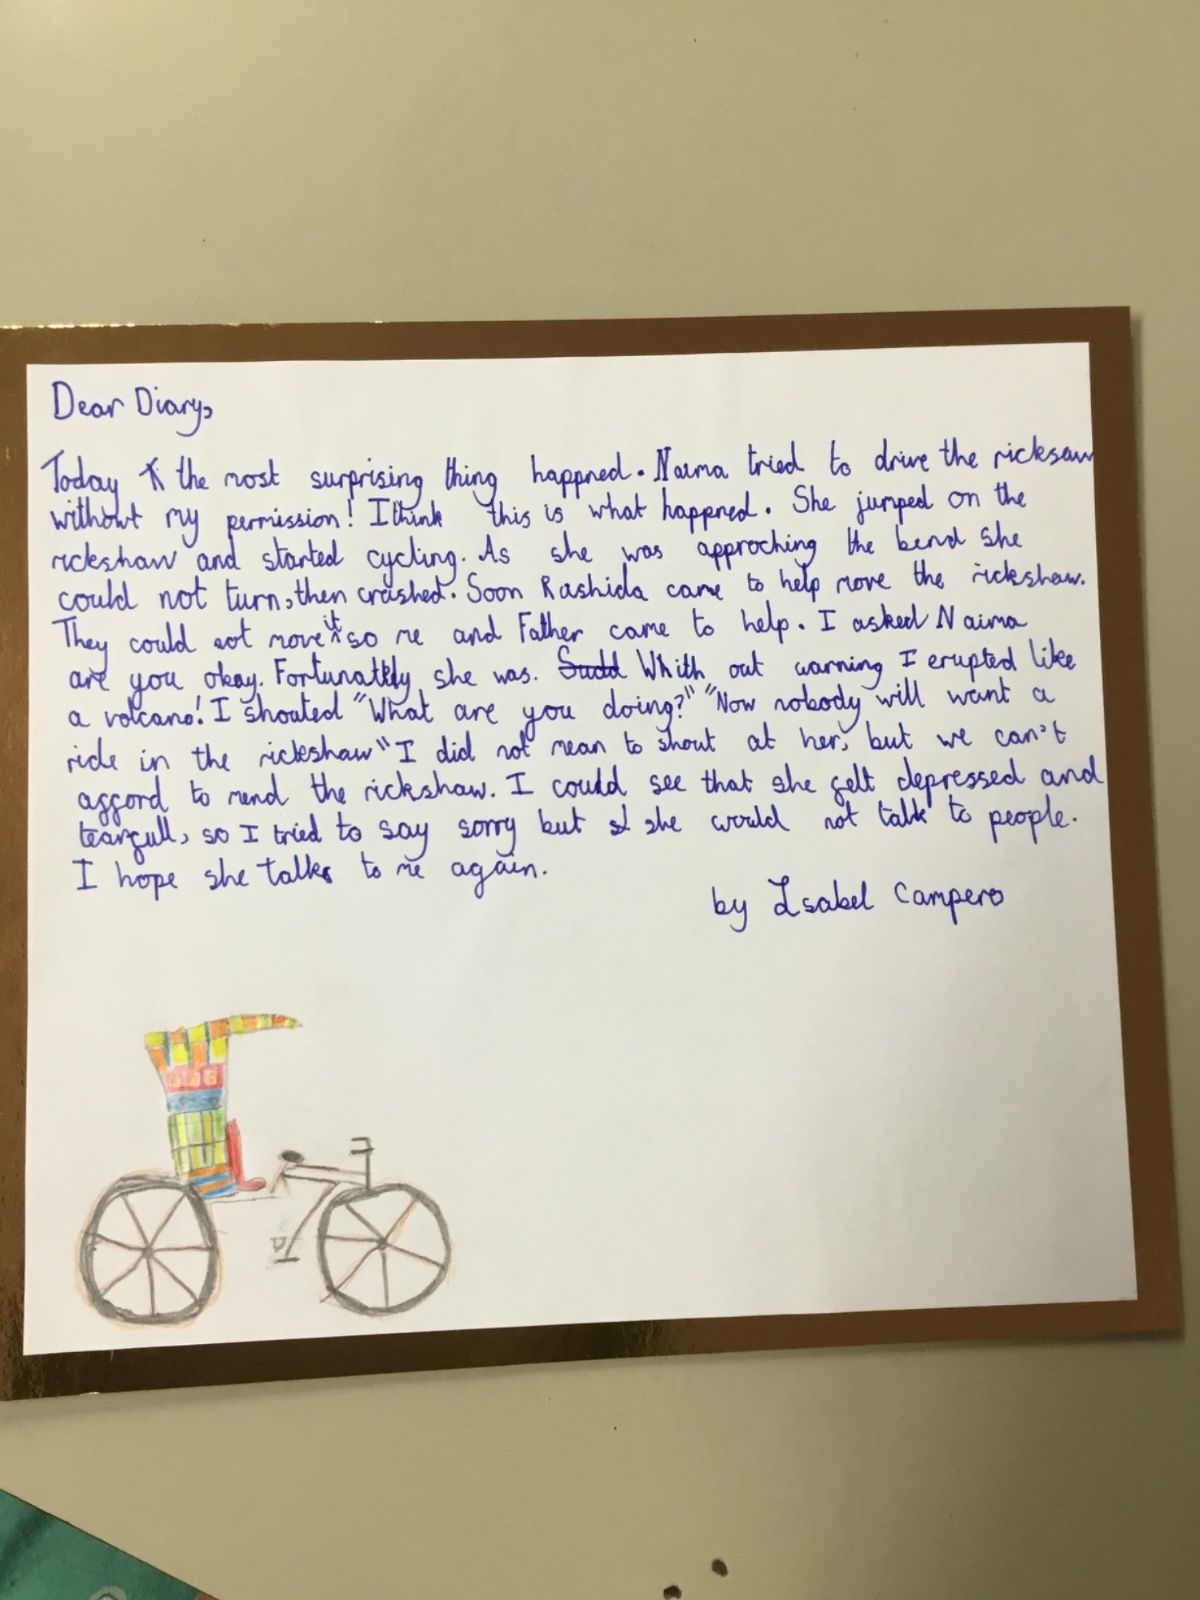 Dear Diary,
Today the most surprising thing happned. Naima tried to drive the ricksaw
without my permission! I think this is what happned. She jumped on the
rickshaw and started cycling. As she was approching the bend she
could not turn, then crashed. Soon Rashida came to help move the rickshaw.
They could not move it so me and Father came to help. I asked Naima
are you okay. Fortunatly she was. Sudd Whith out warning I erupted like
a volcano! I shouted "What are you doing?" "Now nobody will want a
ride in the rickshaw" I did not mean to shout at her, but we can't
afford to mend the rickshaw. I could see that she felt depressed and
tearfull, so I tried to say sorry but she would not talk to people.
I hope she talks to me again.
by Isabel Campero